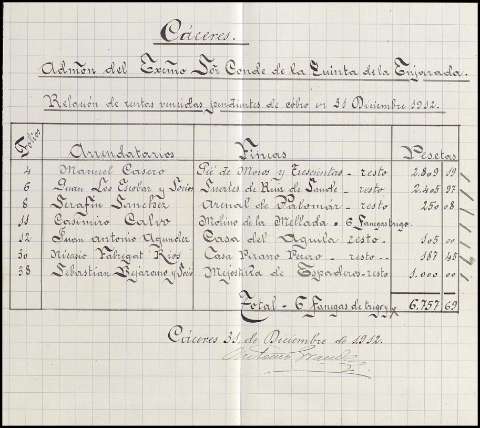 Cáceres.
Admón del Excmo Sor Conde de la Quinta de la Enjarada.
Relación de rentas vencidas pendientes de cobro en 31 Diciembre 1912.
Folios Arrendatarios Fincas Pesetas
4 Manuel Casero Pié de Moro y Trescientas - resto 2.809 19
6 Juan Los Escobar y Socios Suertes de Ruiz de - resto 2.405 97
8 Serafín Sanchez Arenal de Palomár - resto 250 08
11 Casimiro Calvo Molino de la Mellada - 6 Fanegas trigo.
12 Juan Antonio Casa del Aguila resto - 105 00
30 Nicasio Fabregat Rios Casa - resto - 187 45
38 Sebastián Bejarano y Socio de Espaderos - resto 1.000 00
Total - 6 Fanegas de trigo y 6.757 69
Cáceres 31 de Diciembre de 1912.